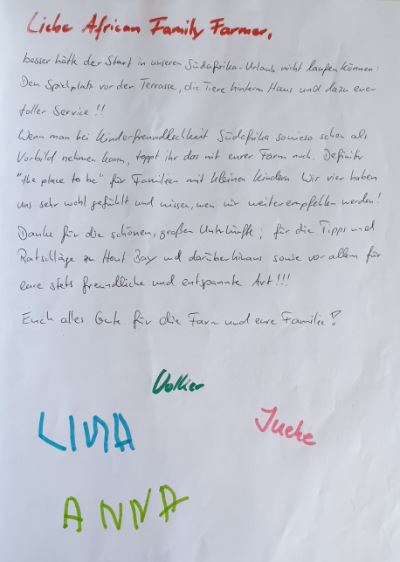 Liebe African Family Farmer,
besser hätte der Start in unseren Südafrika-Urlaub nicht laufen können:
Den Spielplatz vor der Terrasse, die Tiere hinterm Haus und dazu euer
toller Service!!
Wenn man bei Kinderfreundlichkeit Südafrika sowieso schon als
Vorbild nehmen kann, toppt ihr das mit eurer Farm noch. Definitiv
"the place to be" für Familien mit kleinen Kindern. Wir vier haben
uns sehr wohl gefühlt und wissen, wen wir weiterempfehlen werden!
Danke für die schönen, großen Unterkünfte; für die Tipps und
Ratschläge zu Hout Bay und darüber hinaus sowie vor allem für
eure stets freundliche und entspannte Art!!!
Euch alles Gute für die Farm und eure Familie!
Volker
LINA
ANNA